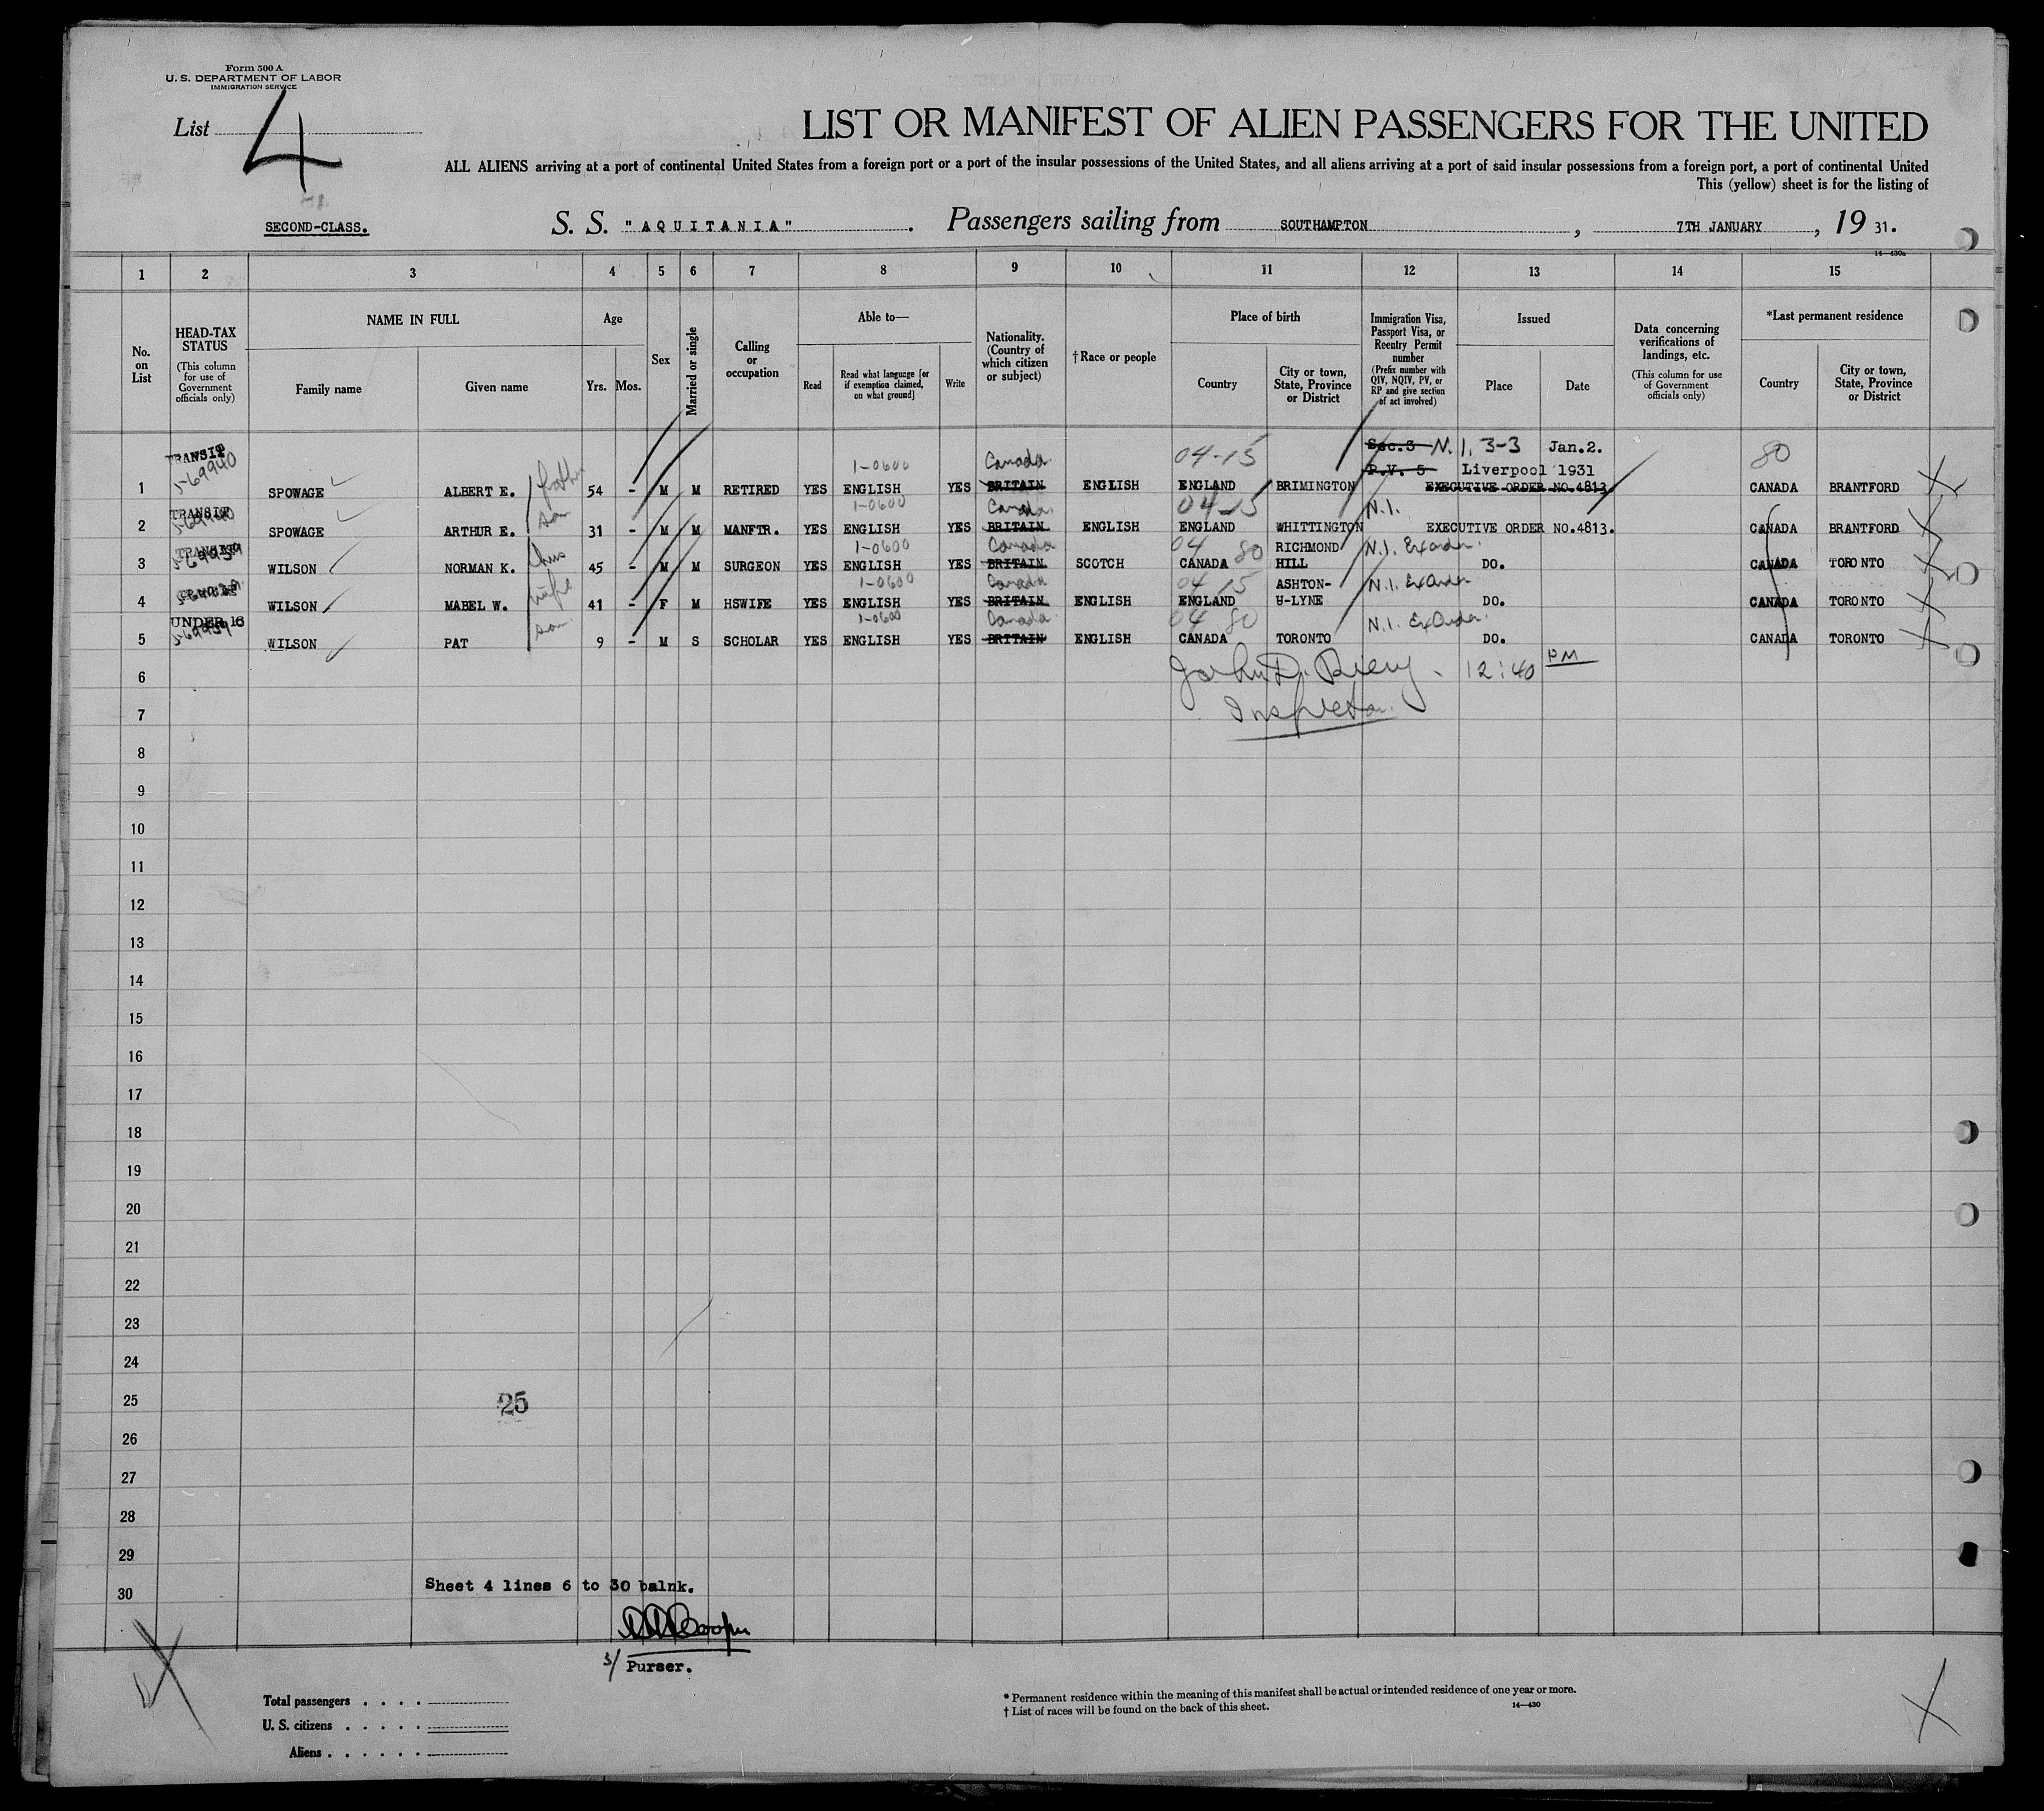 Form 500 A
U. S. DEPARTMENT OF LABOR
IMMIGRATION SERVICE
List 4
LIST OR MANIFEST OF ALIEN PASSENGERS FOR THE UNITED
ALL ALIENS arriving at a port of continental United States from a foreign port or a port of the insular possessions of the United States, and all aliens arriving at a port of said insular possessions from a foreign port, a port of continental United
This (yellow) sheet is for the listing of
SECOND-CLASS. S. S. "AQUITANIA". Passengers sailing from SOUTHAMPTON, 7TH JANUARY, 19 31.
14—430a
1 2 3 4 5 6 7 8 9 10 11 12 13 14 15
No. on List
HEAD-TAX STATUS (This column for use of Government officials only)
NAME IN FULL
Family name Given name
Age
Yrs. Mos.
Sex
Married or single
Calling or occupation
Able to—
Read Read what language [or if exemption claimed, on what ground] Write
Nationality. (Country of which citizen or subject)
† Race or people
Place of birth
Country City or town, State, Province or District
Immigration Visa, Passport Visa, or Reentry Permit number (Prefix number with QIV, NQIV, PV, or RP and give section of act involved)
Issued
Place Date
Data concerning verifications of landings, etc. (This column for use of Government officials only)
*Last permanent residence
Country City or town, State, Province or District
TRANSIT Sec.3 N.1. 3-3 Jan.2.
5-69940 father 1-0600 Canada 04-15 P.V. 5 Liverpool 1931 80
1 SPOWAGE ALBERT E. 54 - M M RETIRED YES ENGLISH YES BRITAIN ENGLISH ENGLAND BRIMINGTON EXECUTIVE ORDER NO.4813. CANADA BRANTFORD
TRANSIT 5-69940 son 1-0600 Canada 04-15 N.1.
2 SPOWAGE ARTHUR E. 31 - M M MANFTR. YES ENGLISH YES BRITAIN ENGLISH ENGLAND WHITTINGTON EXECUTIVE ORDER NO.4813. CANADA BRANTFORD
TRANSIT 5-69939 hus 1-0600 Canada 04 80 RICHMOND N.1. Ex order
3 WILSON NORMAN K. 45 - M M SURGEON YES ENGLISH YES BRITAIN SCOTCH CANADA HILL DO. CANADA TORONTO
wife 1-0600 Canada 04 15 ASHTON- N.1. Ex Order
4 WILSON MABEL W. 41 - F M HSWIFE YES ENGLISH YES BRITAIN ENGLISH ENGLAND U-LYNE DO. CANADA TORONTO
UNDER 16 5-69939 son 1-0600 Canada 04 80 N.1. Ex Order
5 WILSON PAT 9 - M S SCHOLAR YES ENGLISH YES BRITAIN ENGLISH CANADA TORONTO DO. CANADA TORONTO
6 John D. 12:40 PM
7 Inspector
8
9
10
11
12
13
14
15
16
17
18
19
20
21
22
23
24
25 25
26
27
28
29
30 Sheet 4 lines 6 to 30 balnk.
Purser.
Total passengers
U. S. citizens
Aliens
* Permanent residence within the meaning of this manifest shall be actual or intended residence of one year or more.
† List of races will be found on the back of this sheet.
14—430